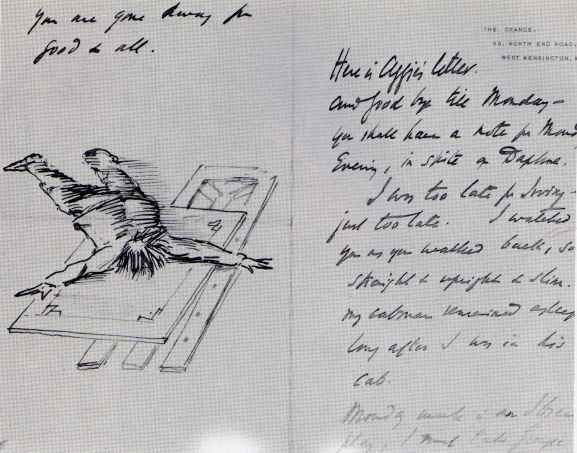 You are gone away for
good & all.
THE GRANGE,
49, NORTH END ROAD,
WEST KENSINGTON, W
Here is Aggie's letter.
and good bye till Monday—
you shall have a note for Mond
Evening, in spite of Daphne.
I was too late for Irving—
just too late. I watched
you as you walked back, so
straight & upright & slim.
my cabman remained asleep
long after I was in his
cab.
Monday
play, I must take